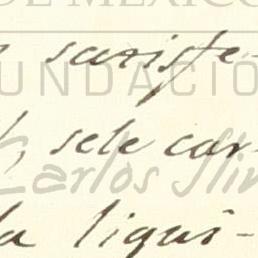 DE MÉXICO
satisfe-
FUNDACIÓ
sele car-
Carlos Slim
la liqui-